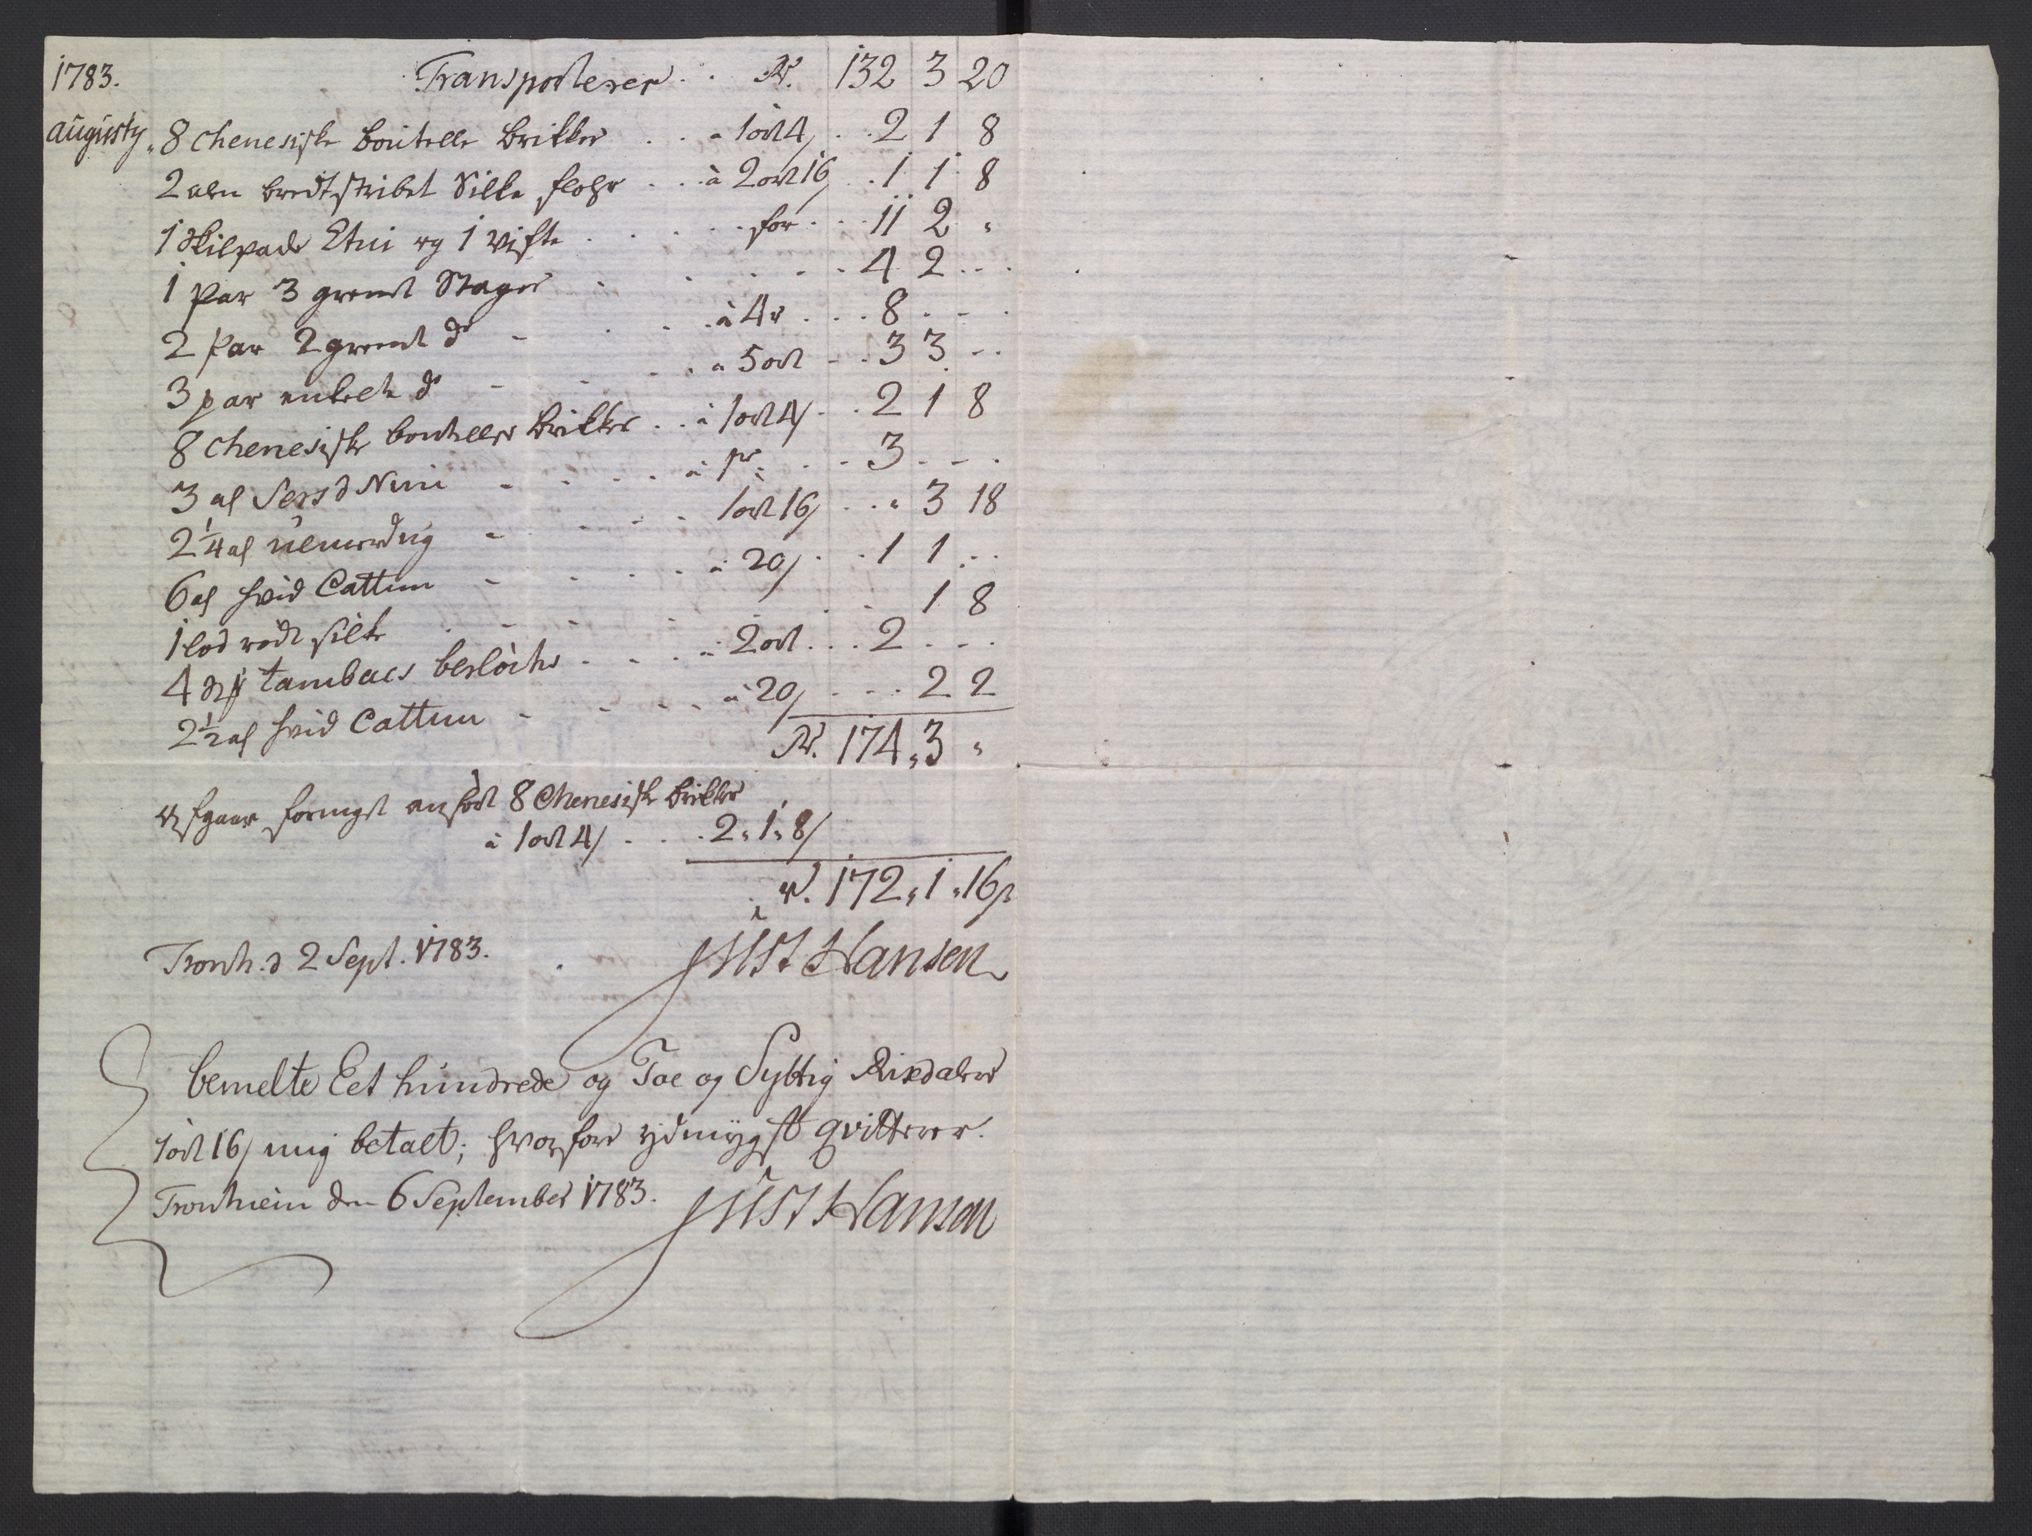 1783. Transporterer . . Rd. 132 3 20
augusty „ 8 Chenesiske boutelle brikker . . . a 1 ort 4 s . . 2 1 8
2 alen bredt stribet Silke flohr . . . à 2 ort 16 s . . 1 1 8
1 Skilpade Etui og 1 Vifte . . . . . for . . . 11 2 „
1 Par 3 grenet Stager . . . . . . 4 2 . . .
2 Par 2 grenet do - . . . . à 4 r . . . 8 . - .
3 par enkelte do - - - . . a 5 ort - . . 3 3 - . .
8 Chenesiske bouteller brikker . . . à 1 ort 4 s . . . 2 1 8
3 al Sersd Nimi - - . . . à 1 r . . - 3 - - .
2 1/4 al uldmerdug - - - . 1 ort 16 s . . „ 3 18
6 al hvid Cattun - - . . . a 20 s . . . 1 1 . .
1 lod rødt silke . - - - . . . 1 8
4 tambacs berlocker . . . . a 2 ort . . . 2 . . - .
2 1/2 al hvid Cattun - - - . . a 20 s . - - . 2 2
Rd. 174 „ 3 „
Afgaar forrigst anført 8 Chenesiske brikker
à 1 ort 4 s - . . . 2 „ 1 „ 8 s
rd. 172 „ 1 „ 16 s
Tronh. d 2 Sept. 1783. Just Hansen
bemelte Eet hundrede og Toe og Syttig Rixdaler
1 ort 16 s mig betalt; hvorfore ydmygst qvitterer.
Tronhiem den 6 September 1783. Just Hansen